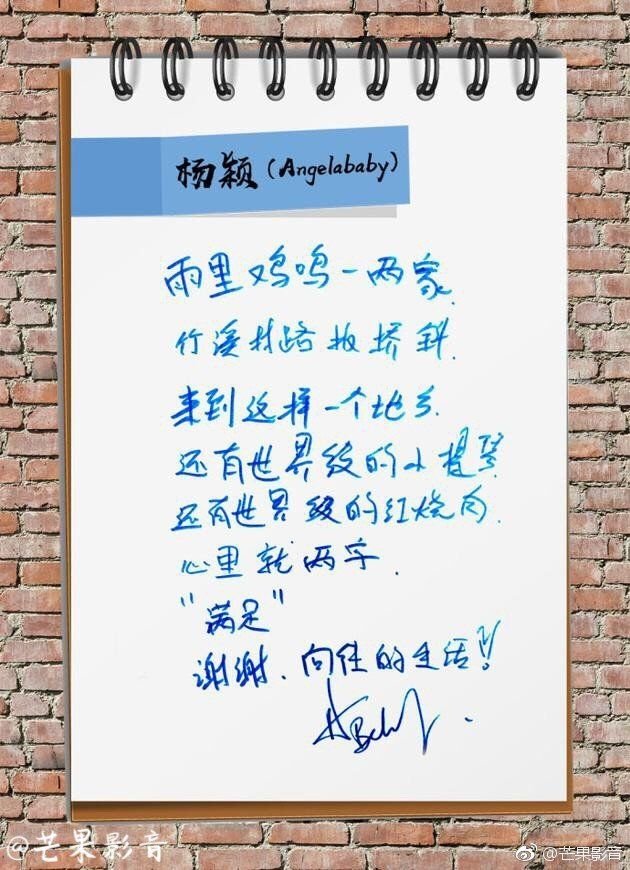 杨颖(Angelababy)
雨里鸡鸣一两家.
竹溪村路板桥斜.
来到这样一个地方.
还有世界级的小提琴
还有世界级的红烧肉.
心里就两字.
"满足"
谢谢.向往的生活!!
@芒果影音
@芒果影音